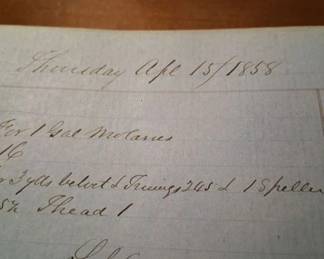 Thursday Apl 15/1858
For 1 Gal Molasses
16
3 yds belvet & Trimgs 245 & 1 Speller
Thead 1